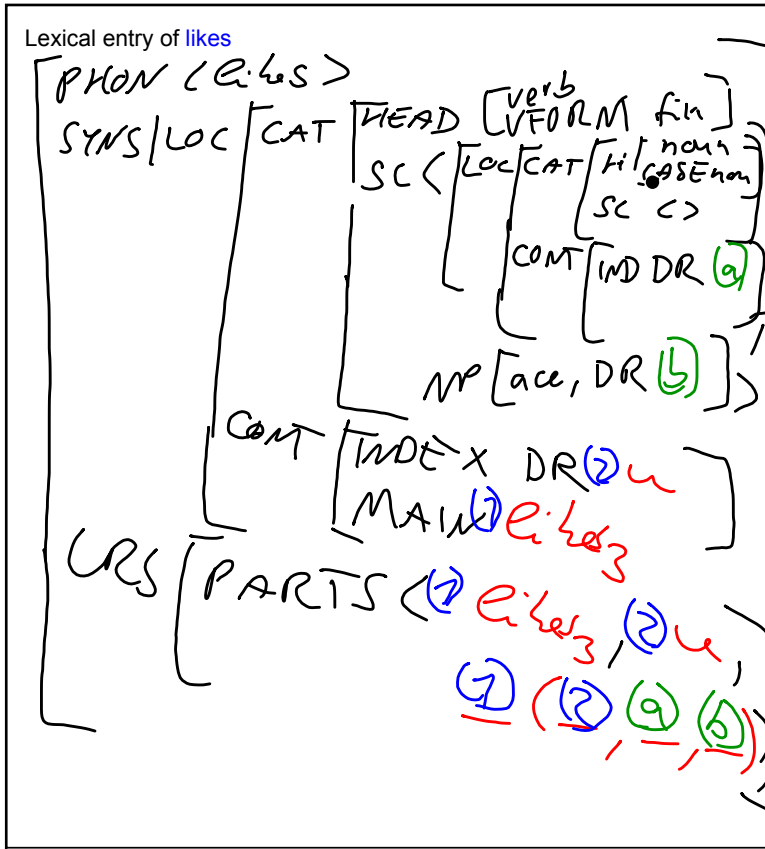 Lexical entry of likes
[PHON <likes>
SYNS|LOC [CAT [HEAD [verb
VFORM fin]
SC < [LOC [CAT [H noun
CASE nom]
SC <>
CONT [IND DR (a)
NP [acc, DR (b)] >
CONT [INDEX DR (2) u
MAIN (1) likes3 ]
LRS [PARTS < (1) likes3, (2) u,
(1) ((2), (a), (b)) >